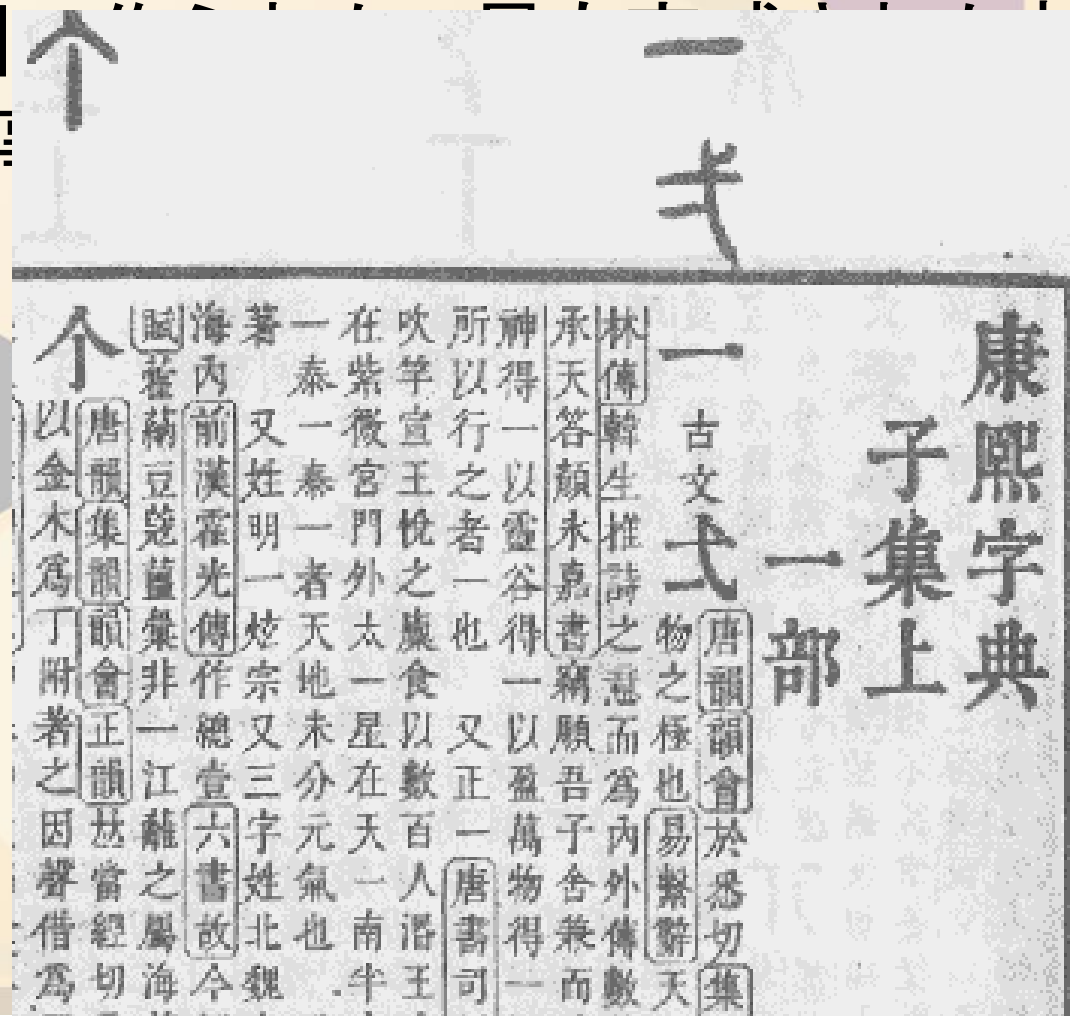 康熙字典
子集上
一部
一 古文弌
唐韻韻會於悉切集
物之極也易繫辭天
林傳韓生推詩之意而爲內外傳數
承天答顏永嘉書竊願吾子舍兼而
神得一以靈谷得一以盈萬物得一
所以行之者一也 又正一唐書司
吹竽宣王悅之廩食以數百人湣王
在紫微宮門外太一星在天一南半
一泰一泰一者天地未分元氣也
著 又姓明一炫宗又三字姓北魏
海內前漢霍光傳作總壹六書故今
賦藿蒳豆蔻薑彙非一江蘺之屬海
个
唐韻集韻韻會正韻𠀤當經切
以金木爲丁附著之因聲借爲